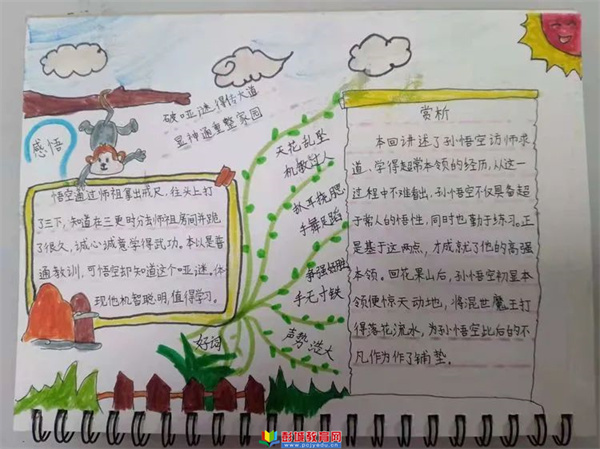 破哑谜得传大道
显神通重整家园
感悟
悟空通过师祖拿出戒尺,往头上打
了三下,知道在三更时分法师祖房间并跪
了很久,诚心诚意学得武功。本以是普
通教训,可悟空却知道这个哑谜。体
现他机智聪明,值得学习。
天花乱坠
机敏过人
抓耳挠腮
手舞足蹈
争强好胜
手无寸铁
声势浩大
好词
赏析
本回讲述了孙悟空访师求
道、学得超常本领的经历,从这一
过程中不难看出,孙悟空不仅具备超
于常人的悟性,同时也勤于练习。正
是基于这两点,才成就了他的高强
本领。回花果山后,孙悟空初显本
领便惊天动地,将混世魔王打
得落花流水,为孙悟空此后的不
凡作为作了铺垫。
彭城教育网
www.pcjyedu.cn